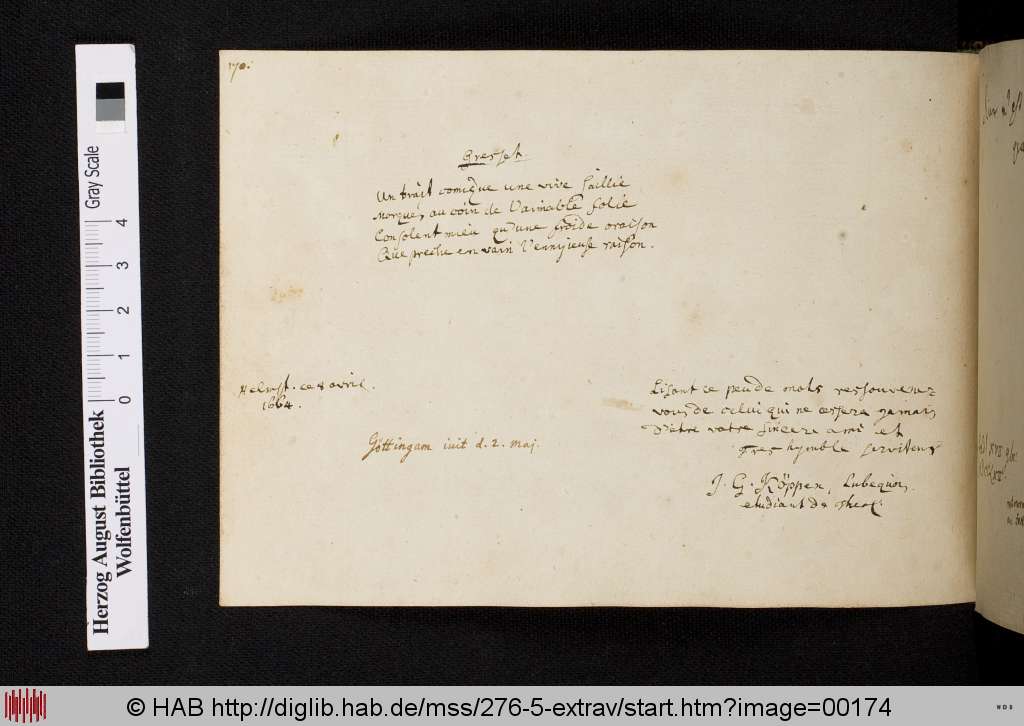 170.
Gresset
Un trait comique une vive saillie
Marquez au coin de l'aimable folie
Consolent mieu qu'une froide oraison
Que preche en vain l'ennyieuse raison.
Helmst. ce 4 avril.
1664.
Göttingam ivit d. 2. Maj.
Lisant ce peu de mots ressouvenez
vous de celui qui ne cessera jamais
d'etre votre sincere ami et
tres hymble serviteur
J. G. Köppen, Lubequois.
etudiant de Theol.
Herzog August Bibliothek
Wolfenbüttel
Gray Scale
0 1 2 3 4
© HAB http://diglib.hab.de/mss/276-5-extrav/start.htm?image=00174
WDB